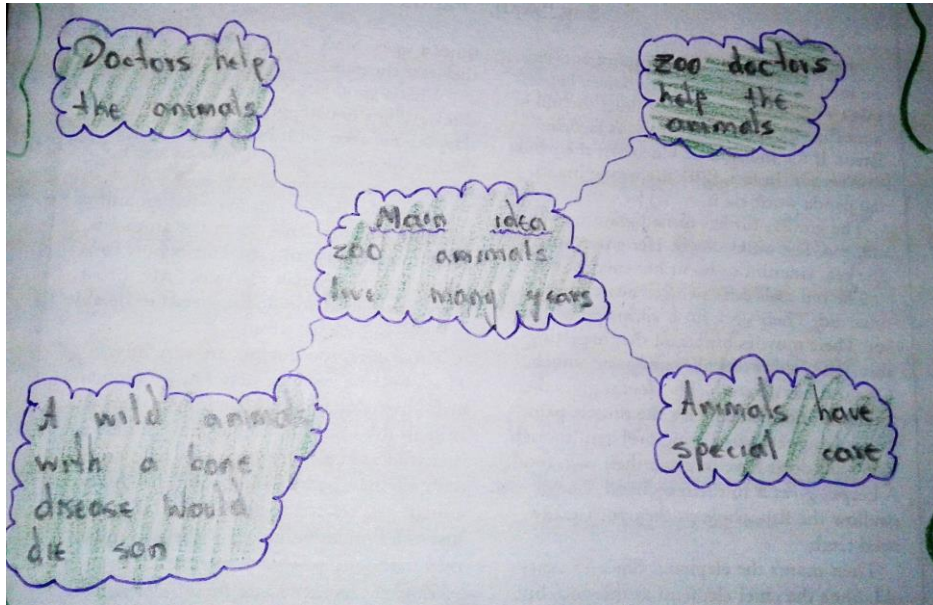 Doctors help
the animals
zoo doctors
help the
animals
Main idea
zoo animals
live many years
A wild animals
with a bone
disease would
die son
Animals have
special care